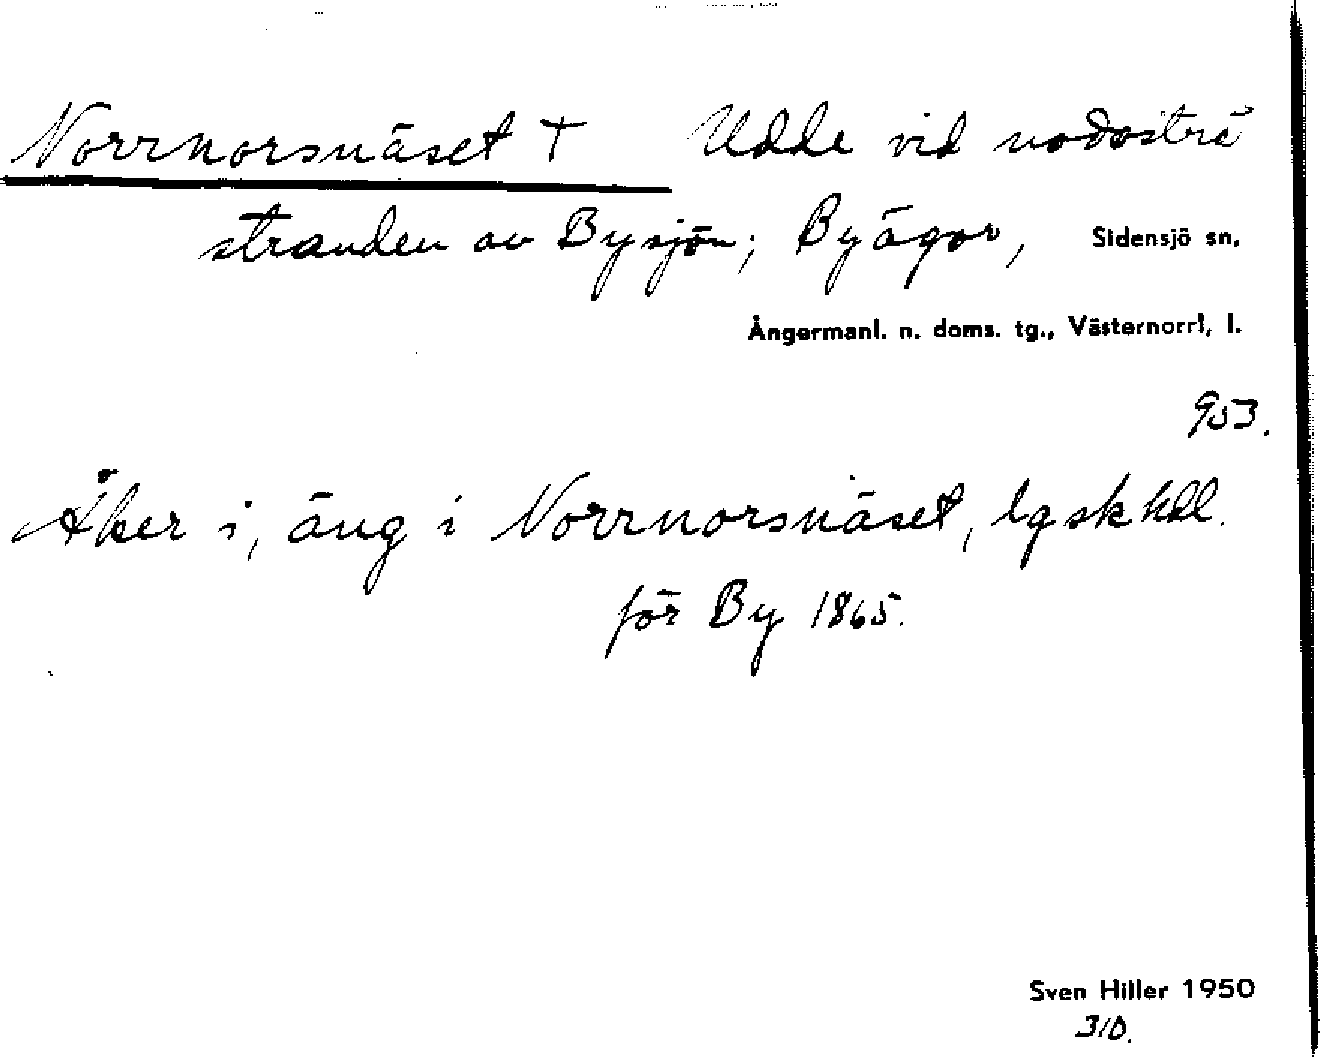 Norrnorsnäset † Udde vid nodöstra
stranden av Bysjön; Byägor, Sidensjö sn,
Ångermanl. n. doms. tg., Västernorrl. l.
953.
Åker i, äng i Norrnorsnäset, lgskhdl.
för By 1865.
Sven Hiller 1950
310.